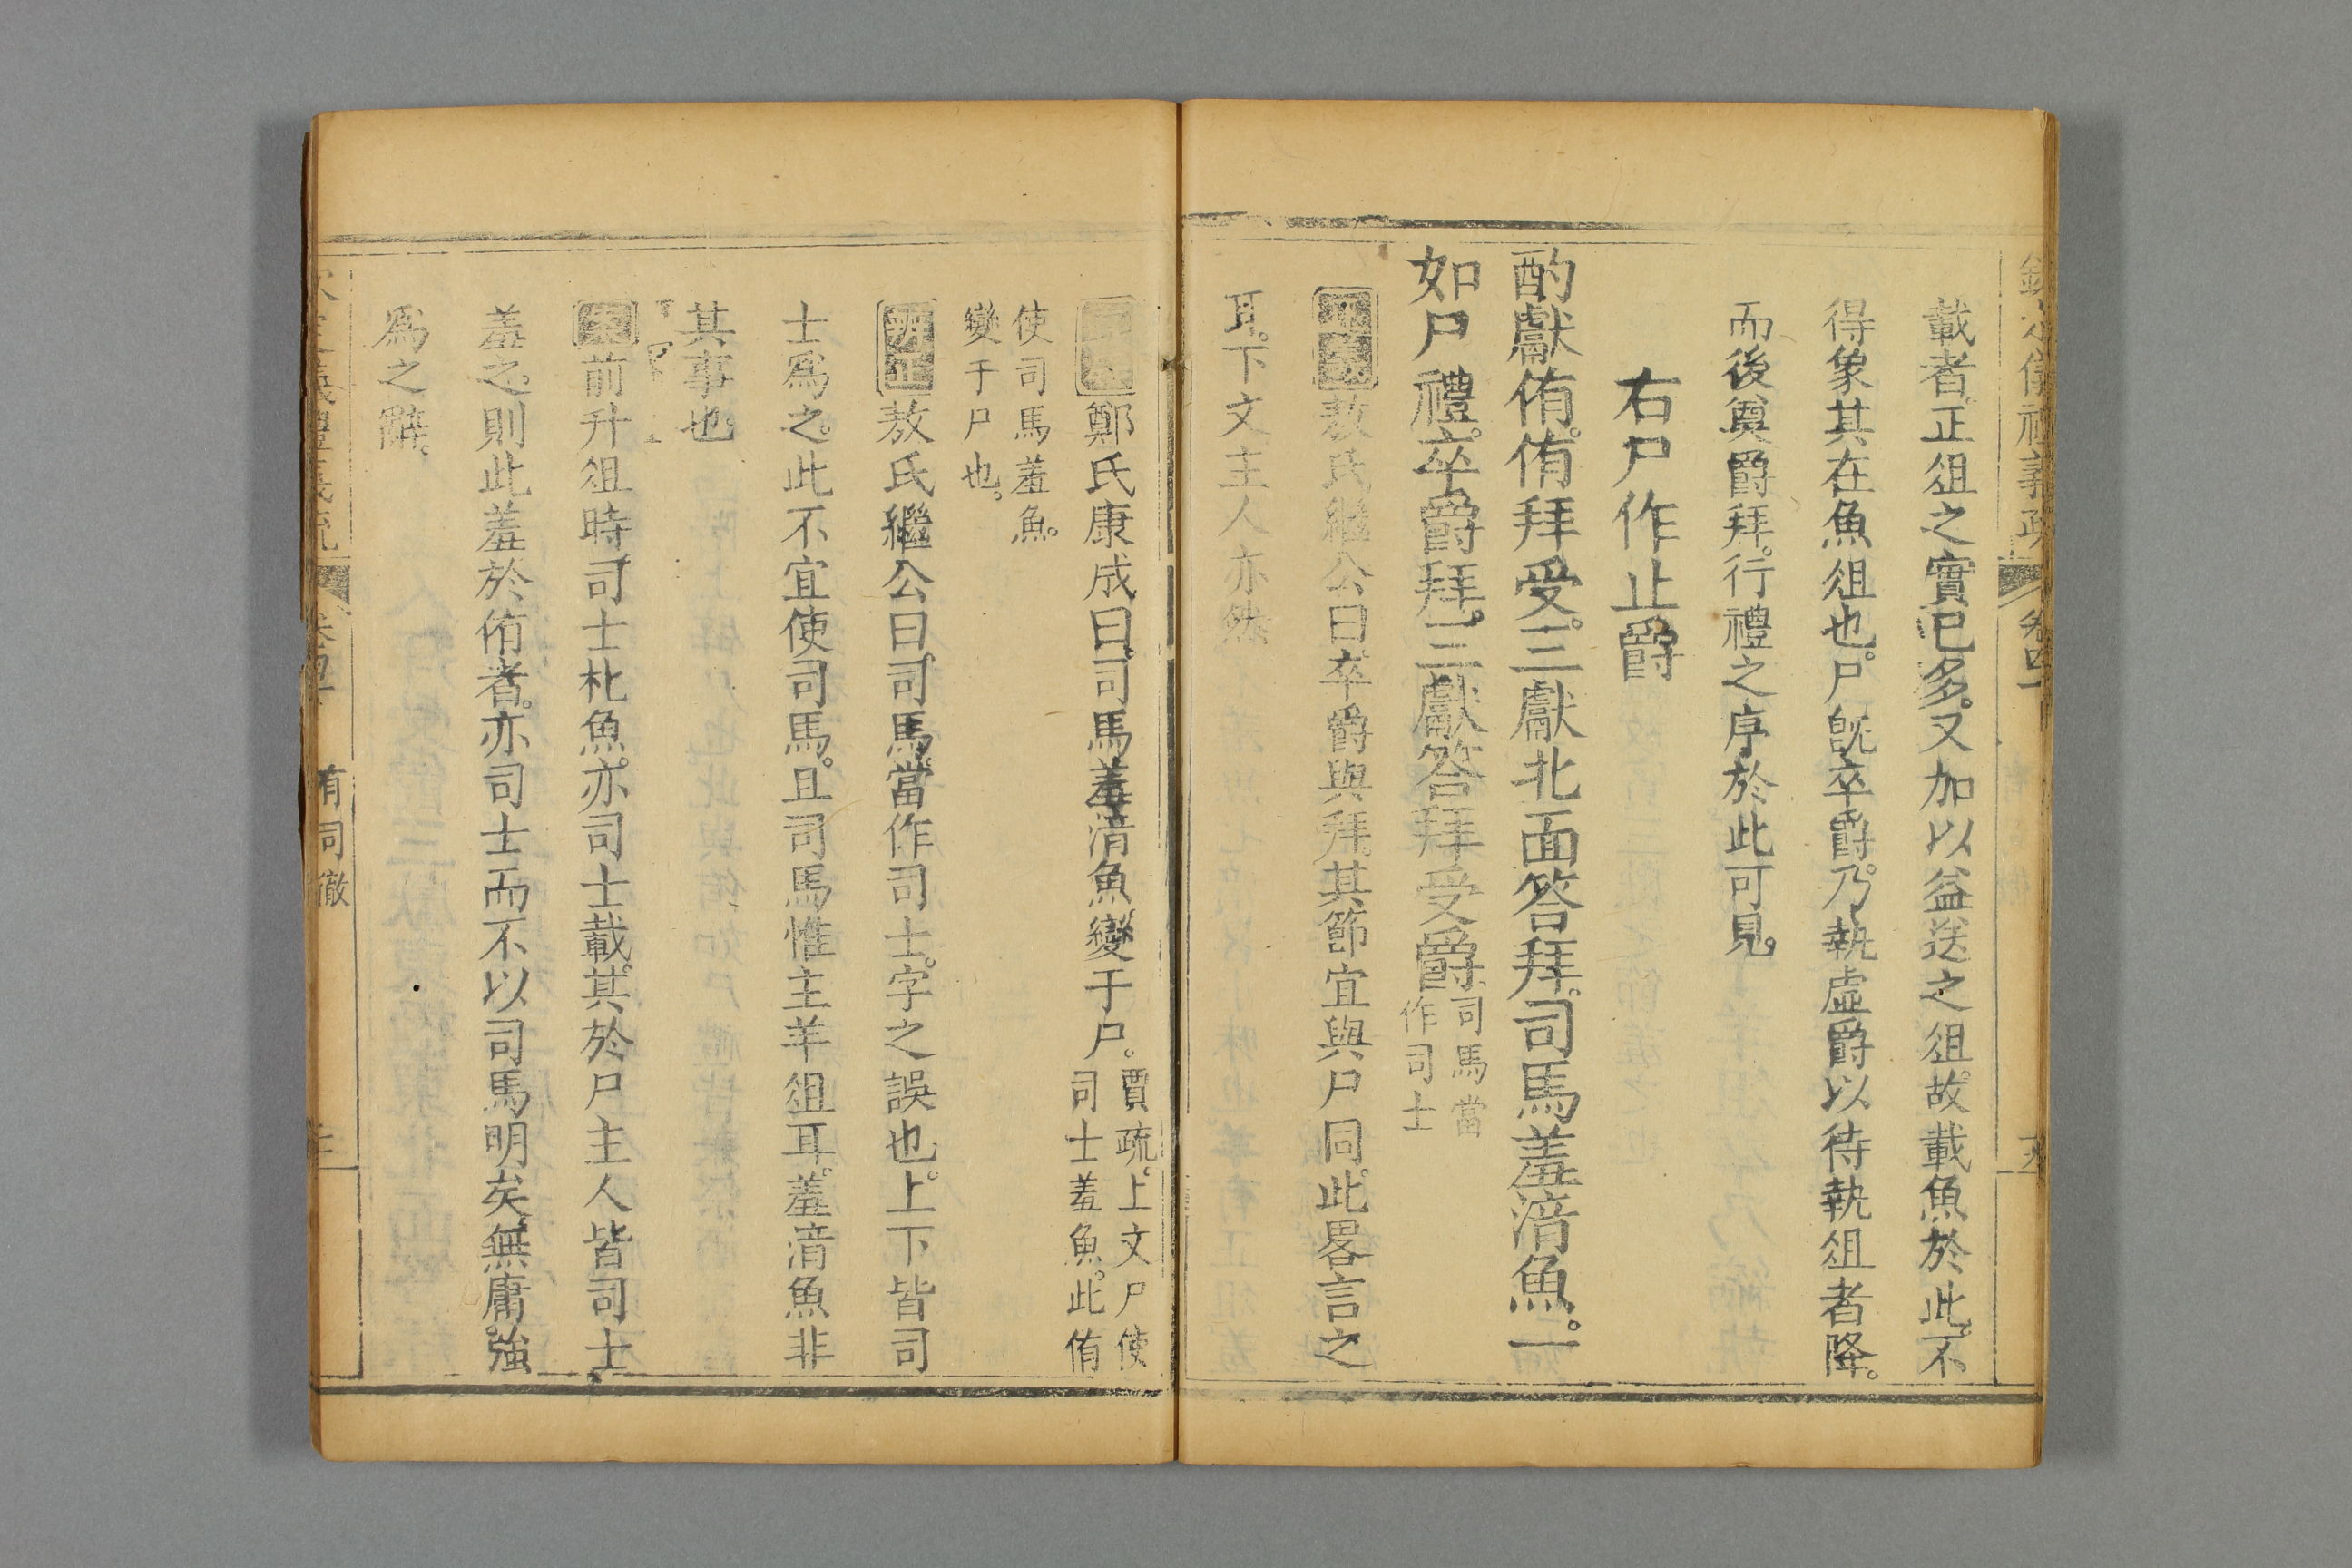 載者。正俎之實已多。又加以益送之俎。故載魚於此。不
得象其在魚俎也。尸旣卒爵。乃執虛爵以待執俎者降。
而後奠爵拜。行禮之序於此可見。
右尸作止爵
酌獻侑。侑拜受。三獻北面答拜。司馬羞湆魚。一
如尸禮。卒爵拜。三獻答拜受爵。
司馬當
作司士
敖氏繼公曰。卒爵與拜。其節宜與尸同。此畧言之
耳。下文主人亦然
鄭氏康成曰。司馬羞湆魚。變于尸。
賈疏。上文尸使
司士羞魚。此侑
使司馬羞魚。
變于尸也。
辨正
敖氏繼公曰。司馬。當作司士。字之誤也。上下皆司
士爲之。此不宜使司馬。且司馬惟主羊俎耳。羞湆魚非
其事也。
案
前升俎時。司士朼魚。亦司士載。其於尸主人皆司士
羞之。則此羞於侑者。亦司士而不以司馬明矣。無庸強
爲之辭。
有司徹